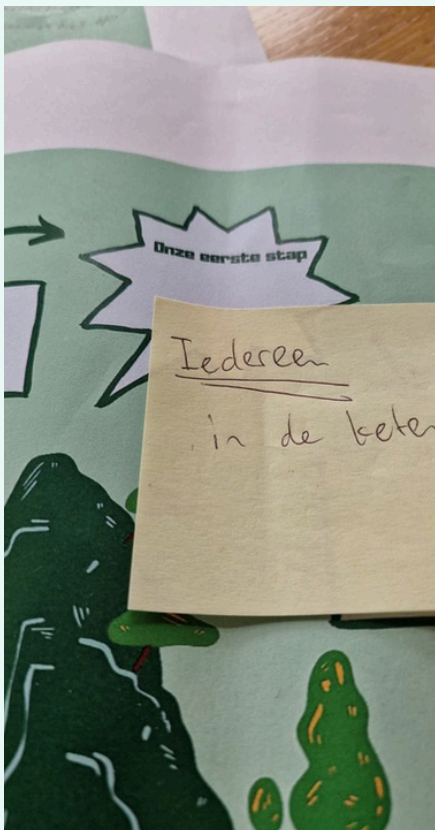 Onze eerste stap
Iedereen
in de keten